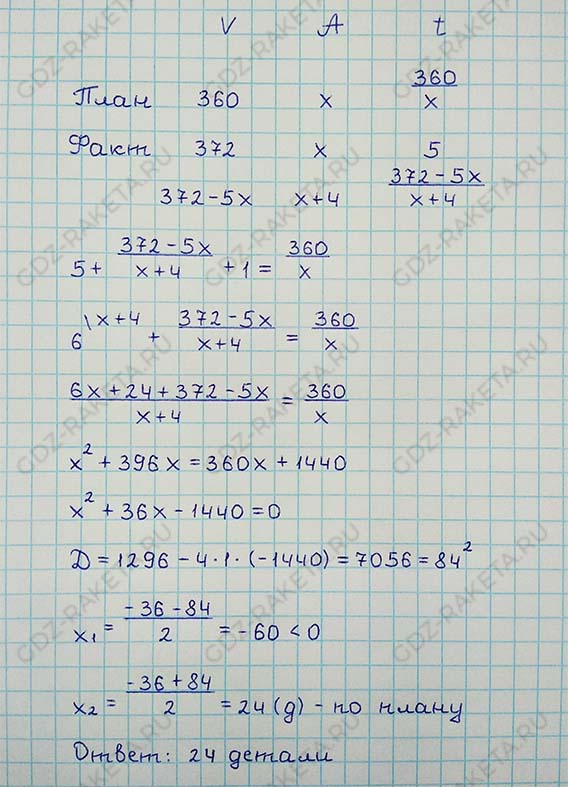 V A t
План 360 x 360/x
Факт 372 x 5
372-5x x+4 (372-5x)/(x+4)
5 + (372-5x)/(x+4) + 1 = 360/x
6\x+4 + (372-5x)/(x+4) = 360/x
(6x+24+372-5x)/(x+4) = 360/x
x² + 396x = 360x + 1440
x² + 36x - 1440 = 0
Д = 1296 - 4·1·(-1440) = 7056 = 84²
x₁ = (-36-84)/2 = -60 < 0
x₂ = (-36+84)/2 = 24 (д) - по плану
Ответ: 24 детали
GDZ-RAKETA.RU